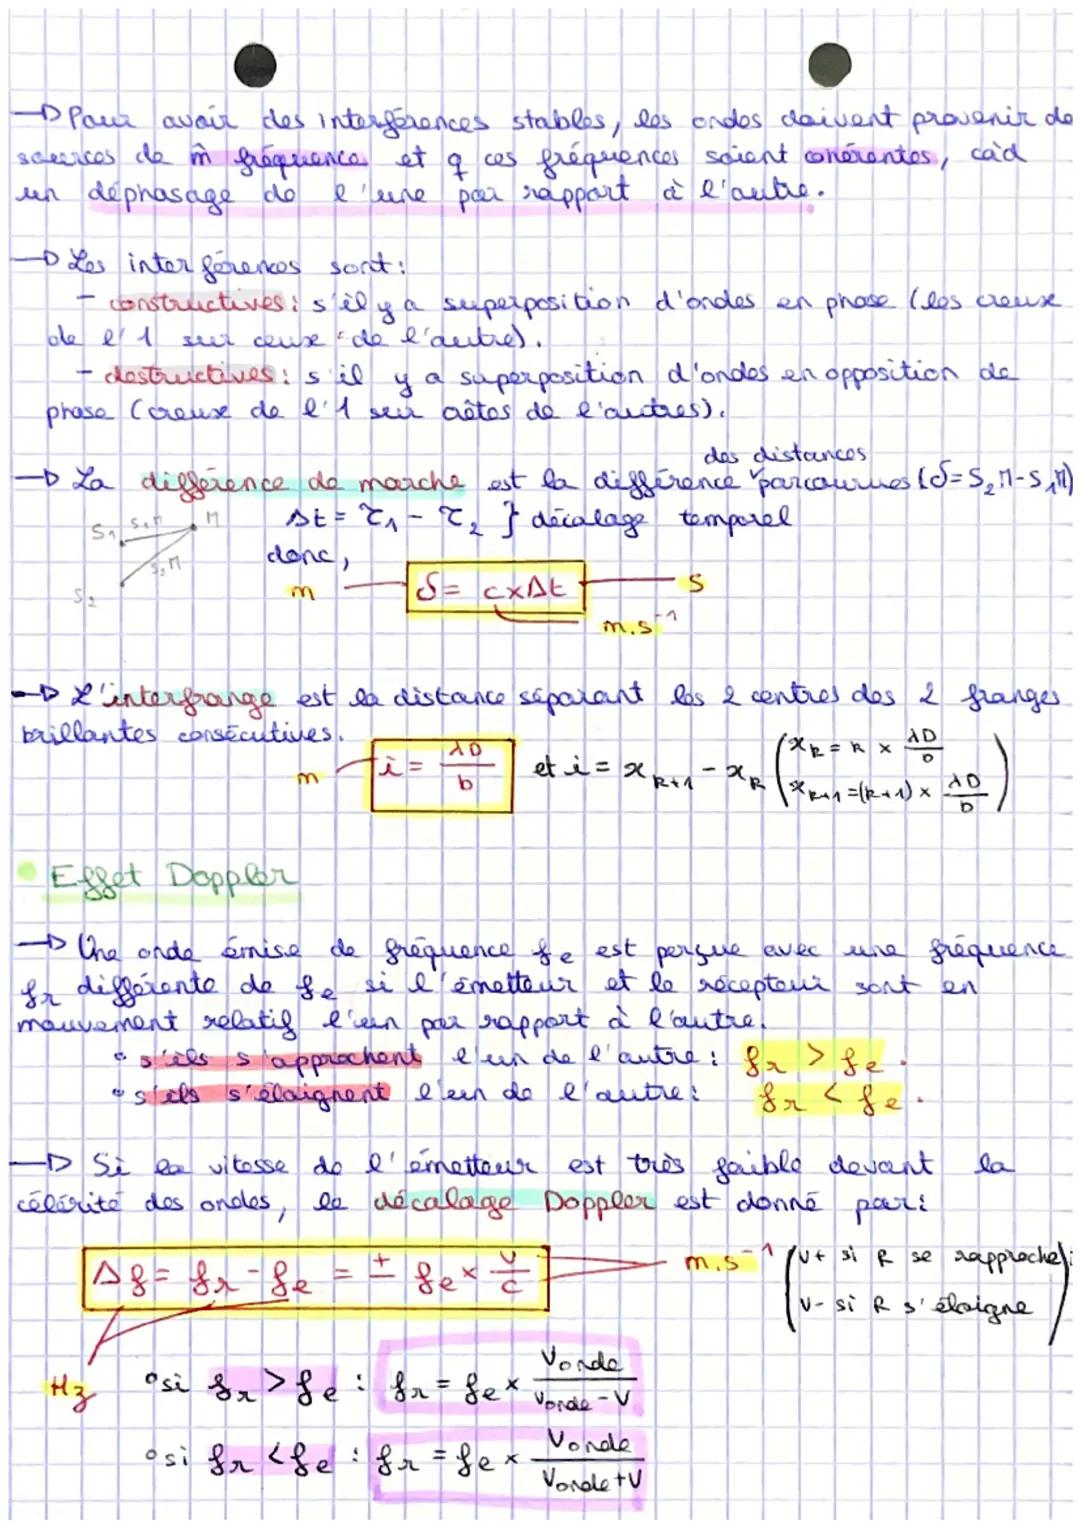 → Pour avoir des interférences stables, les ondes doivent provenir de
sources de m̂ fréquence et q ces fréquences soient cohérentes, càd
un déphasage de l'une par rapport à l'autre.
→ Les interférences sont :
- constructives : s'il y a superposition d'ondes en phase (les creux
de l'1 sur ceux de l'autre).
- destructives : s'il y a superposition d'ondes en opposition de
phase (creux de l'1 sur crêtes de l'autres).
des distances
→ La différence de marche est la différence ˅ parcourues (δ = S₂M - S₁M)
S₁ S₁M M
Δt = τ₁ - τ₂ } décalage temporel
S₂M
donc,
S₂
m δ = c×Δt s
m.s⁻¹
→ L'interfrange est la distance séparant les 2 centres des 2 franges
brillantes consécutives.
m i = λD/b et i = x k+1 - x k (x k = k × λD/b
x k+1 = (k+1) × λD/b)
• Effet Doppler
→ Une onde émise de fréquence fe est perçue avec une fréquence
fr différente de fe si l'émetteur et le récepteur sont en
mouvement relatif l'un par rapport à l'autre.
• s'ils s'approchent l'un de l'autre : fr > fe.
• s'ils s'éloignent l'un de l'autre : fr < fe.
→ Si la vitesse de l'émetteur est très faible devant la
célérité des ondes, le décalage Doppler est donné par :
Δf = fr - fe = ± fe × v/c m.s⁻¹ (v+ si R se rapproche
v- si R s'éloigne)
Hz
° si fr > fe : fr = fe × Vonde / Vonde - V
° si fr < fe : fr = fe × Vonde / Vonde + V